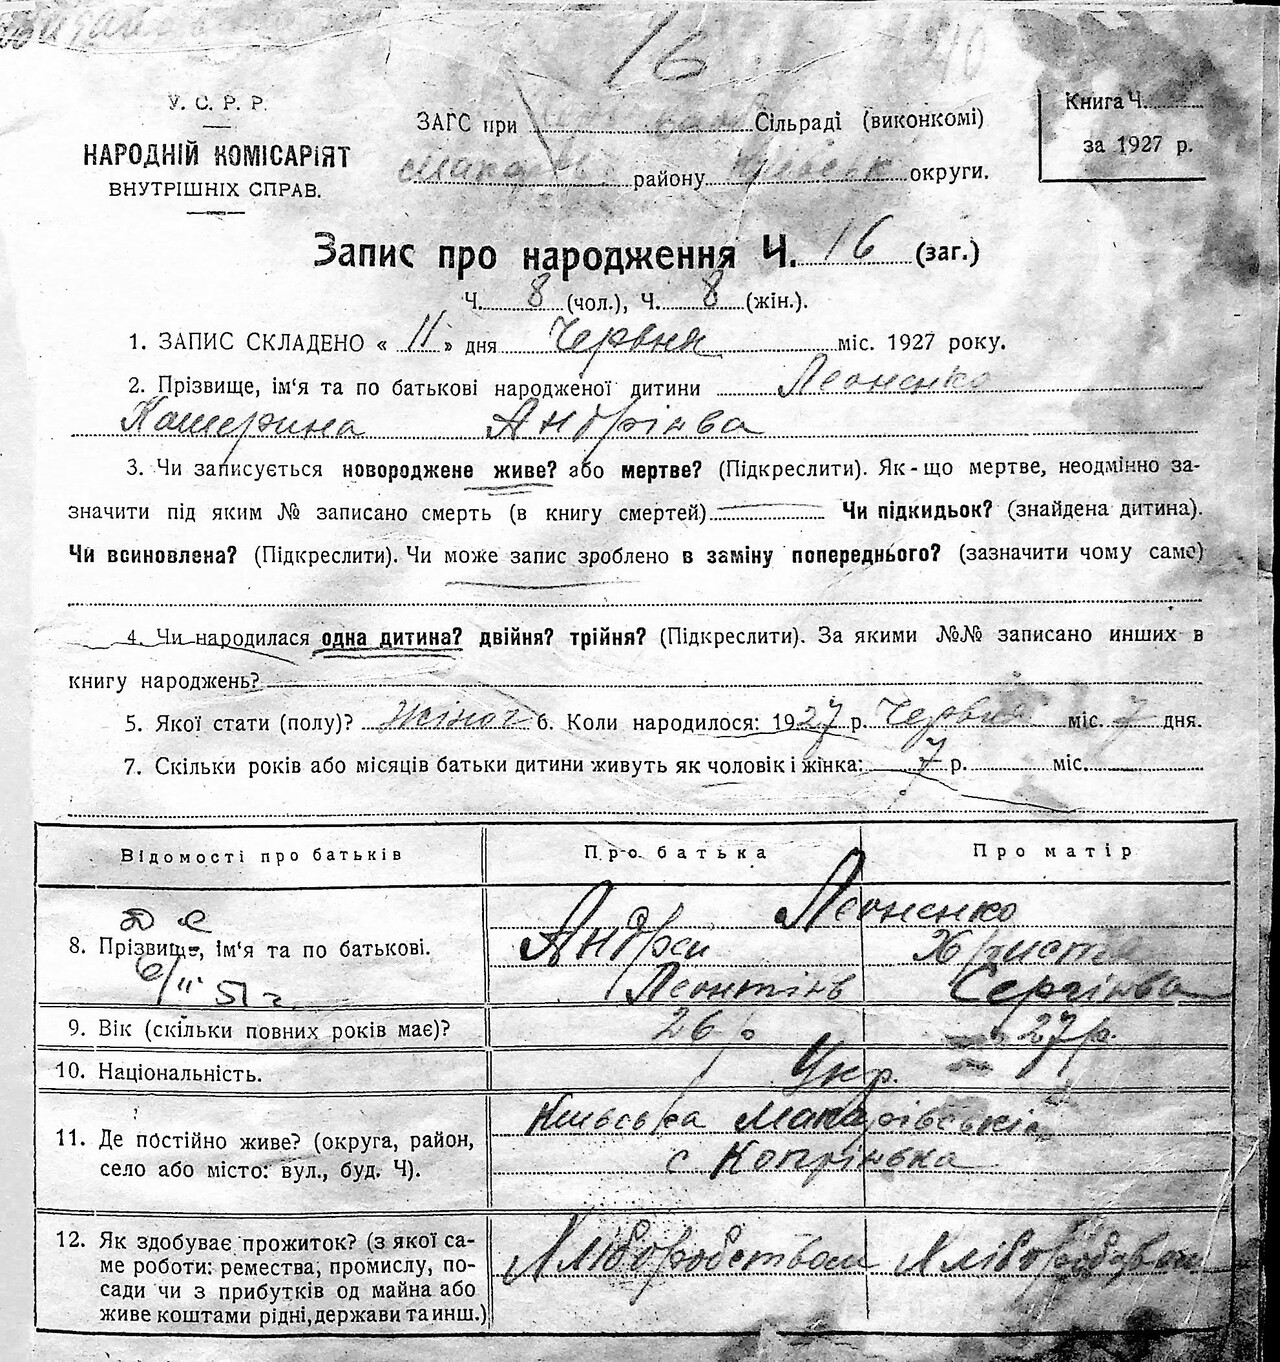 16
У. С. Р. Р.
НАРОДНІЙ КОМІСАРІЯТ
ВНУТРІШНІХ СПРАВ.
ЗАГС при Сільраді (виконкомі)
району округи.
Книга Ч.
за 1927 р.
Запис про народження Ч. 16 (заг.)
Ч. 8 (чол.), Ч. 8 (жін.).
1. ЗАПИС СКЛАДЕНО « 11 » дня Червня міс. 1927 року.
2. Прізвище, ім'я та по батькові народженої дитини Леоненко
Катерина Андріівва
3. Чи записується новороджене живе? або мертве? (Підкреслити). Як-що мертве, неодмінно за-
значити під яким № записано смерть (в книгу смертей) Чи підкидьок? (знайдена дитина).
Чи всиновлена? (Підкреслити). Чи може запис зроблено в заміну попереднього? (зазначити чому саме)
4. Чи народилася одна дитина? двійня? трійня? (Підкреслити). За якими №№ записано инших в
книгу народжень?
5. Якої стати (полу)? Жіноч 6. Коли народилося: 1927 р. Червня міс. 7 дня.
7. Скільки років або місяців батьки дитини живуть як чоловік і жінка: 7 р. міс.
Відомості про батьків Про батька Про матір
8. Прізвище, ім'я та по батькові.
Леоненко
Андрей Христя
Леонтіів Сергіівва
9. Вік (скільки повних років має)? 26 р 27 р.
10. Національність. Укр.
11. Де постійно живе? (округа, район,
село або місто: вул., буд. Ч).
Київська Макарівський
с Копрівка
12. Як здобуває прожиток? (з якої са-
ме роботи: ремества, промислу, по-
сади чи з прибутків од майна або
живе коштами рідні, держави та инш.)
Хліборобством